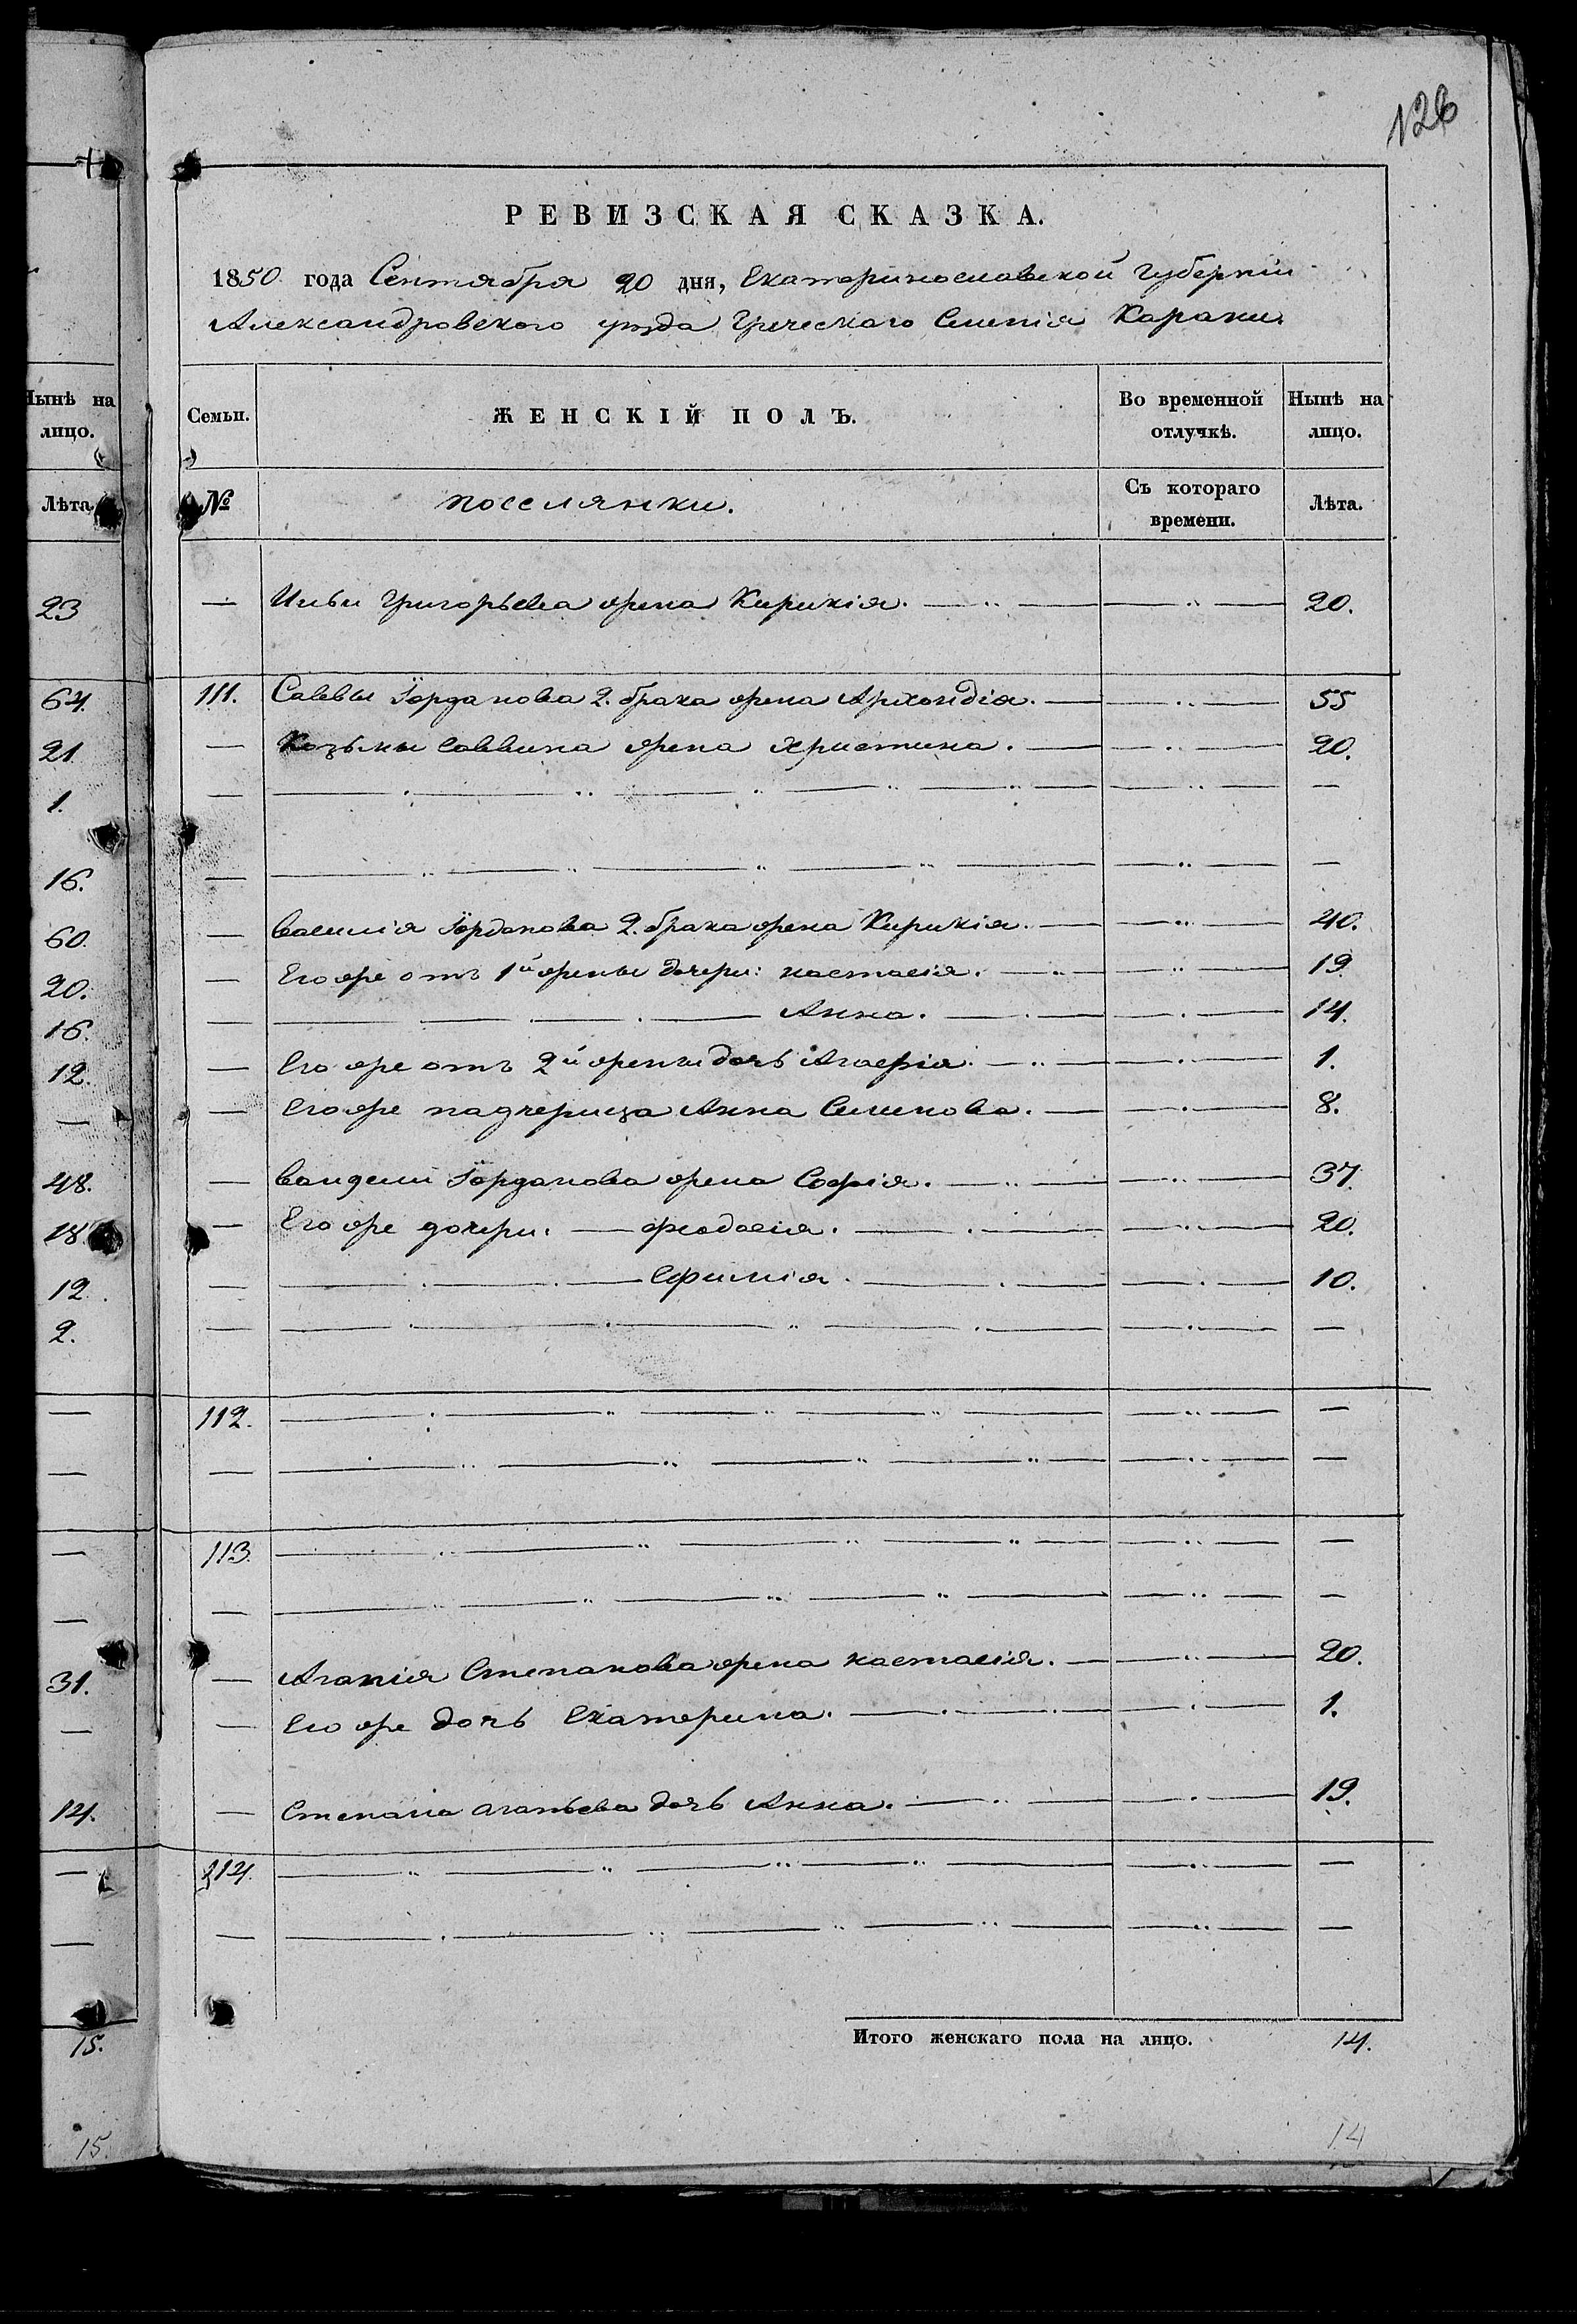 126
РЕВИЗСКАЯ СКАЗКА.
1850 года Сентября 20 дня, Екатеринославской Губерніи
Александровского уѣзда Греческаго Селенія Карани.
Нынѣ на лицо.
Семьи.
ЖЕНСКІЙ ПОЛЪ.
Во временной отлучкѣ.
Нынѣ на лицо.
Лѣта
№
поселянки.
Съ котораго времени.
Лѣта.
23
— Ильи Григорьева жена Кирикія. — 20.
64.
111. Саввы Іорданова 2. брака жена Архондія. — 55
21.
— Козьмы Саввина жена Христина. — 20.
1.
— — —
16.
— — —
60.
— Василія Іорданова 2. брака жена Кирикія. — 40.
20.
— Его же отъ 1й жены дочери: Настасія. — 19.
16.
— — Анна. — 14.
12.
— Его же отъ 2й жены дочь Агафія. — 1.
—
— Его же падчерица Анна Семенова. — 8.
48.
— Іорданова жена Софія. — 37.
18.
— Его же дочери: — Феодосія. — 20.
12.
— — Ефимія. — 10.
2.
— — —
—
112. — —
—
— — —
—
113. — —
—
— — —
31.
— Агапія Степанова жена Настасія. — 20.
—
— Его же дочь Екатерина. — 1.
14.
— Степана Агапьева дочь Анна. — 19.
—
114. — —
—
— — —
15.
Итого женскаго пола на лицо. 14.
15.
14